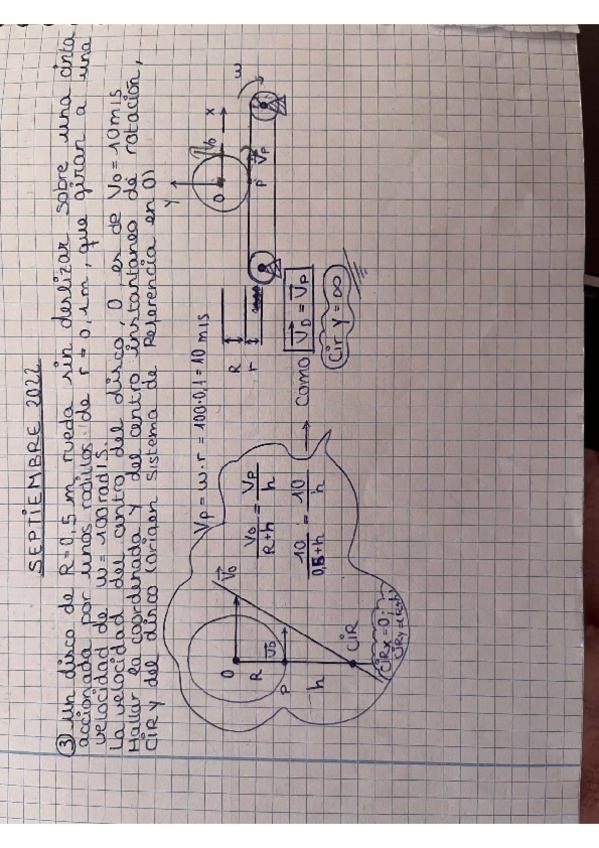 SEPTIEMBRE 2022
③ Un disco de R=0,5 m, rueda sin deslizar sobre una cinta
accionada por unos rodillos de r=0,1m, que giran a una
velocidad de w=100rad/s.
La velocidad del centro del disco, O, es de Vo=10m/s
Hallar la coordenada Y del centro instantáneo de rotación,
CIRy del disco (origen sistema de Referencia en O)
Vp = w·r = 100·0,1 = 10 m/s
R
r
Y
O
Vo
x
P
Vp
w
O
Vo
R
P
h
CIR
CIRx=0;
Vo/R+h = Vp/h
10/0,5+h = 10/h
→ Como Vo = Vp
Cir y = ∞